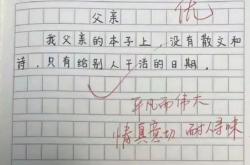 父亲
优
我父亲的本子上，没有散文和
诗，只有给别人干活的日期。
平凡而伟大
情真意切 耐人寻味